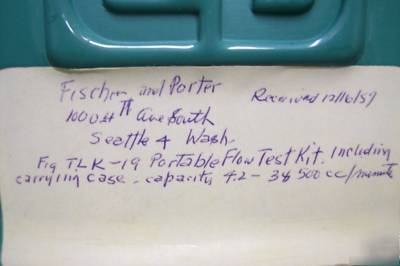 Fischer and Porter
Received 12/16/59
Ave South
Seattle 4 Wash.
Fig TLK-19 Portable Flow Test Kit. Including
carrying case. capacity 4.2 - 38 500 cc/minute